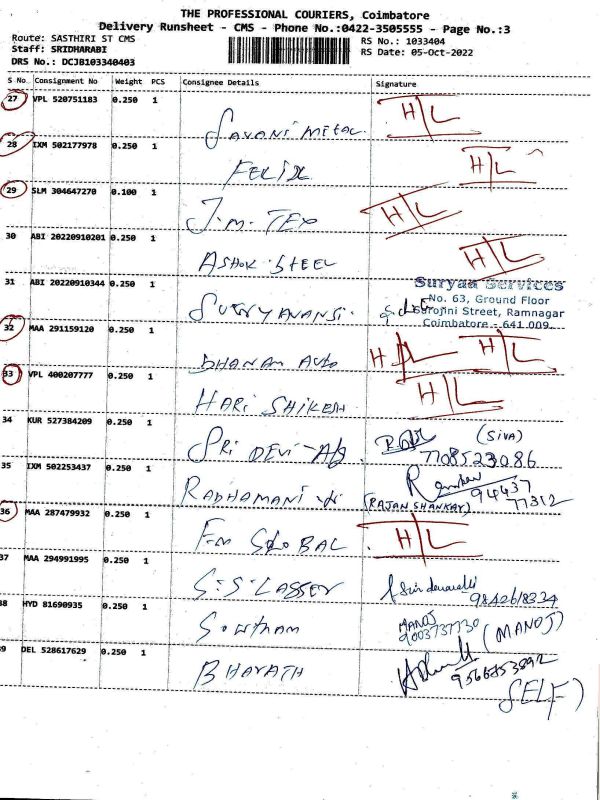 THE PROFESSIONAL COURIERS, Coimbatore
Delivery Runsheet - CMS - Phone No.:0422-3505555 - Page No.:3
Route: SASTHIRI ST CMS
RS No.: 1033404
Staff: SRIDHARABI
RS Date: 05-Oct-2022
DRS No.: DCJB103340403
S No. Consignment No Weight PCS Consignee Details Signature
27 VPL 520751183 0.250 1 H/L
SAVANI METAL
28 IXM 502177978 0.250 1 H/L
FELIX
29 SLM 304647270 0.100 1 H/L
J.M. TEX
30 ABI 20220910201 0.250 1 H/L
ASHOK STEEL
31 ABI 20220910344 0.250 1 Suryaa Services
No. 63, Ground Floor
Sarojini Street, Ramnagar
Coimbatore - 641 009.
32 MAA 291159120 0.250 1
DHANAM AUTO H/L H/L
33 VPL 400207777 0.250 1 H/L
HARI SHIKESH
34 KUR 527384209 0.250 1 (SIVA)
SRI DEVI 7708523086
35 IXM 502253437 0.250 1
RADHAMANI 94437
(RAJAN SHANKAR) 77312
36 MAA 287479932 0.250 1 H/L
Fm GLOBAL
37 MAA 294991995 0.250 1
S.S. LASSER 9842618334
38 HYD 81690935 0.250 1 MANOJ
GOWTHAM 9003737730 (MANOJ)
39 DEL 528617629 0.250 1
BHARATH
SELF)